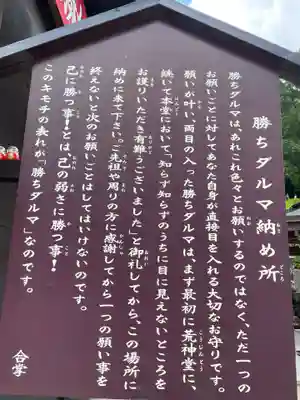 勝ちダルマ納め所
どころ
勝ちダルマは、あれこれ色々とお願いするのではなく、ただ一つの
お願いごとに対してあなた自身が直接目を入れる大切なお守りです。
願いが叶い、両目の入った勝ちダルマは、まず最初に荒神堂に、
こうじんどう
続いて本堂において「知らず知らずのうちに目に見えないところを
お護りいただき有難うございました」と御礼してから、この場所に
納めに来て下さい。ご先祖や周りの方に感謝してから一つの願い事を
終えないと次のお願いごとはしてはいけないのです。
己に勝つ事!とは「己の弱さに勝つ事!
このキモチの表れが「勝ちダルマ」なのです。
合掌